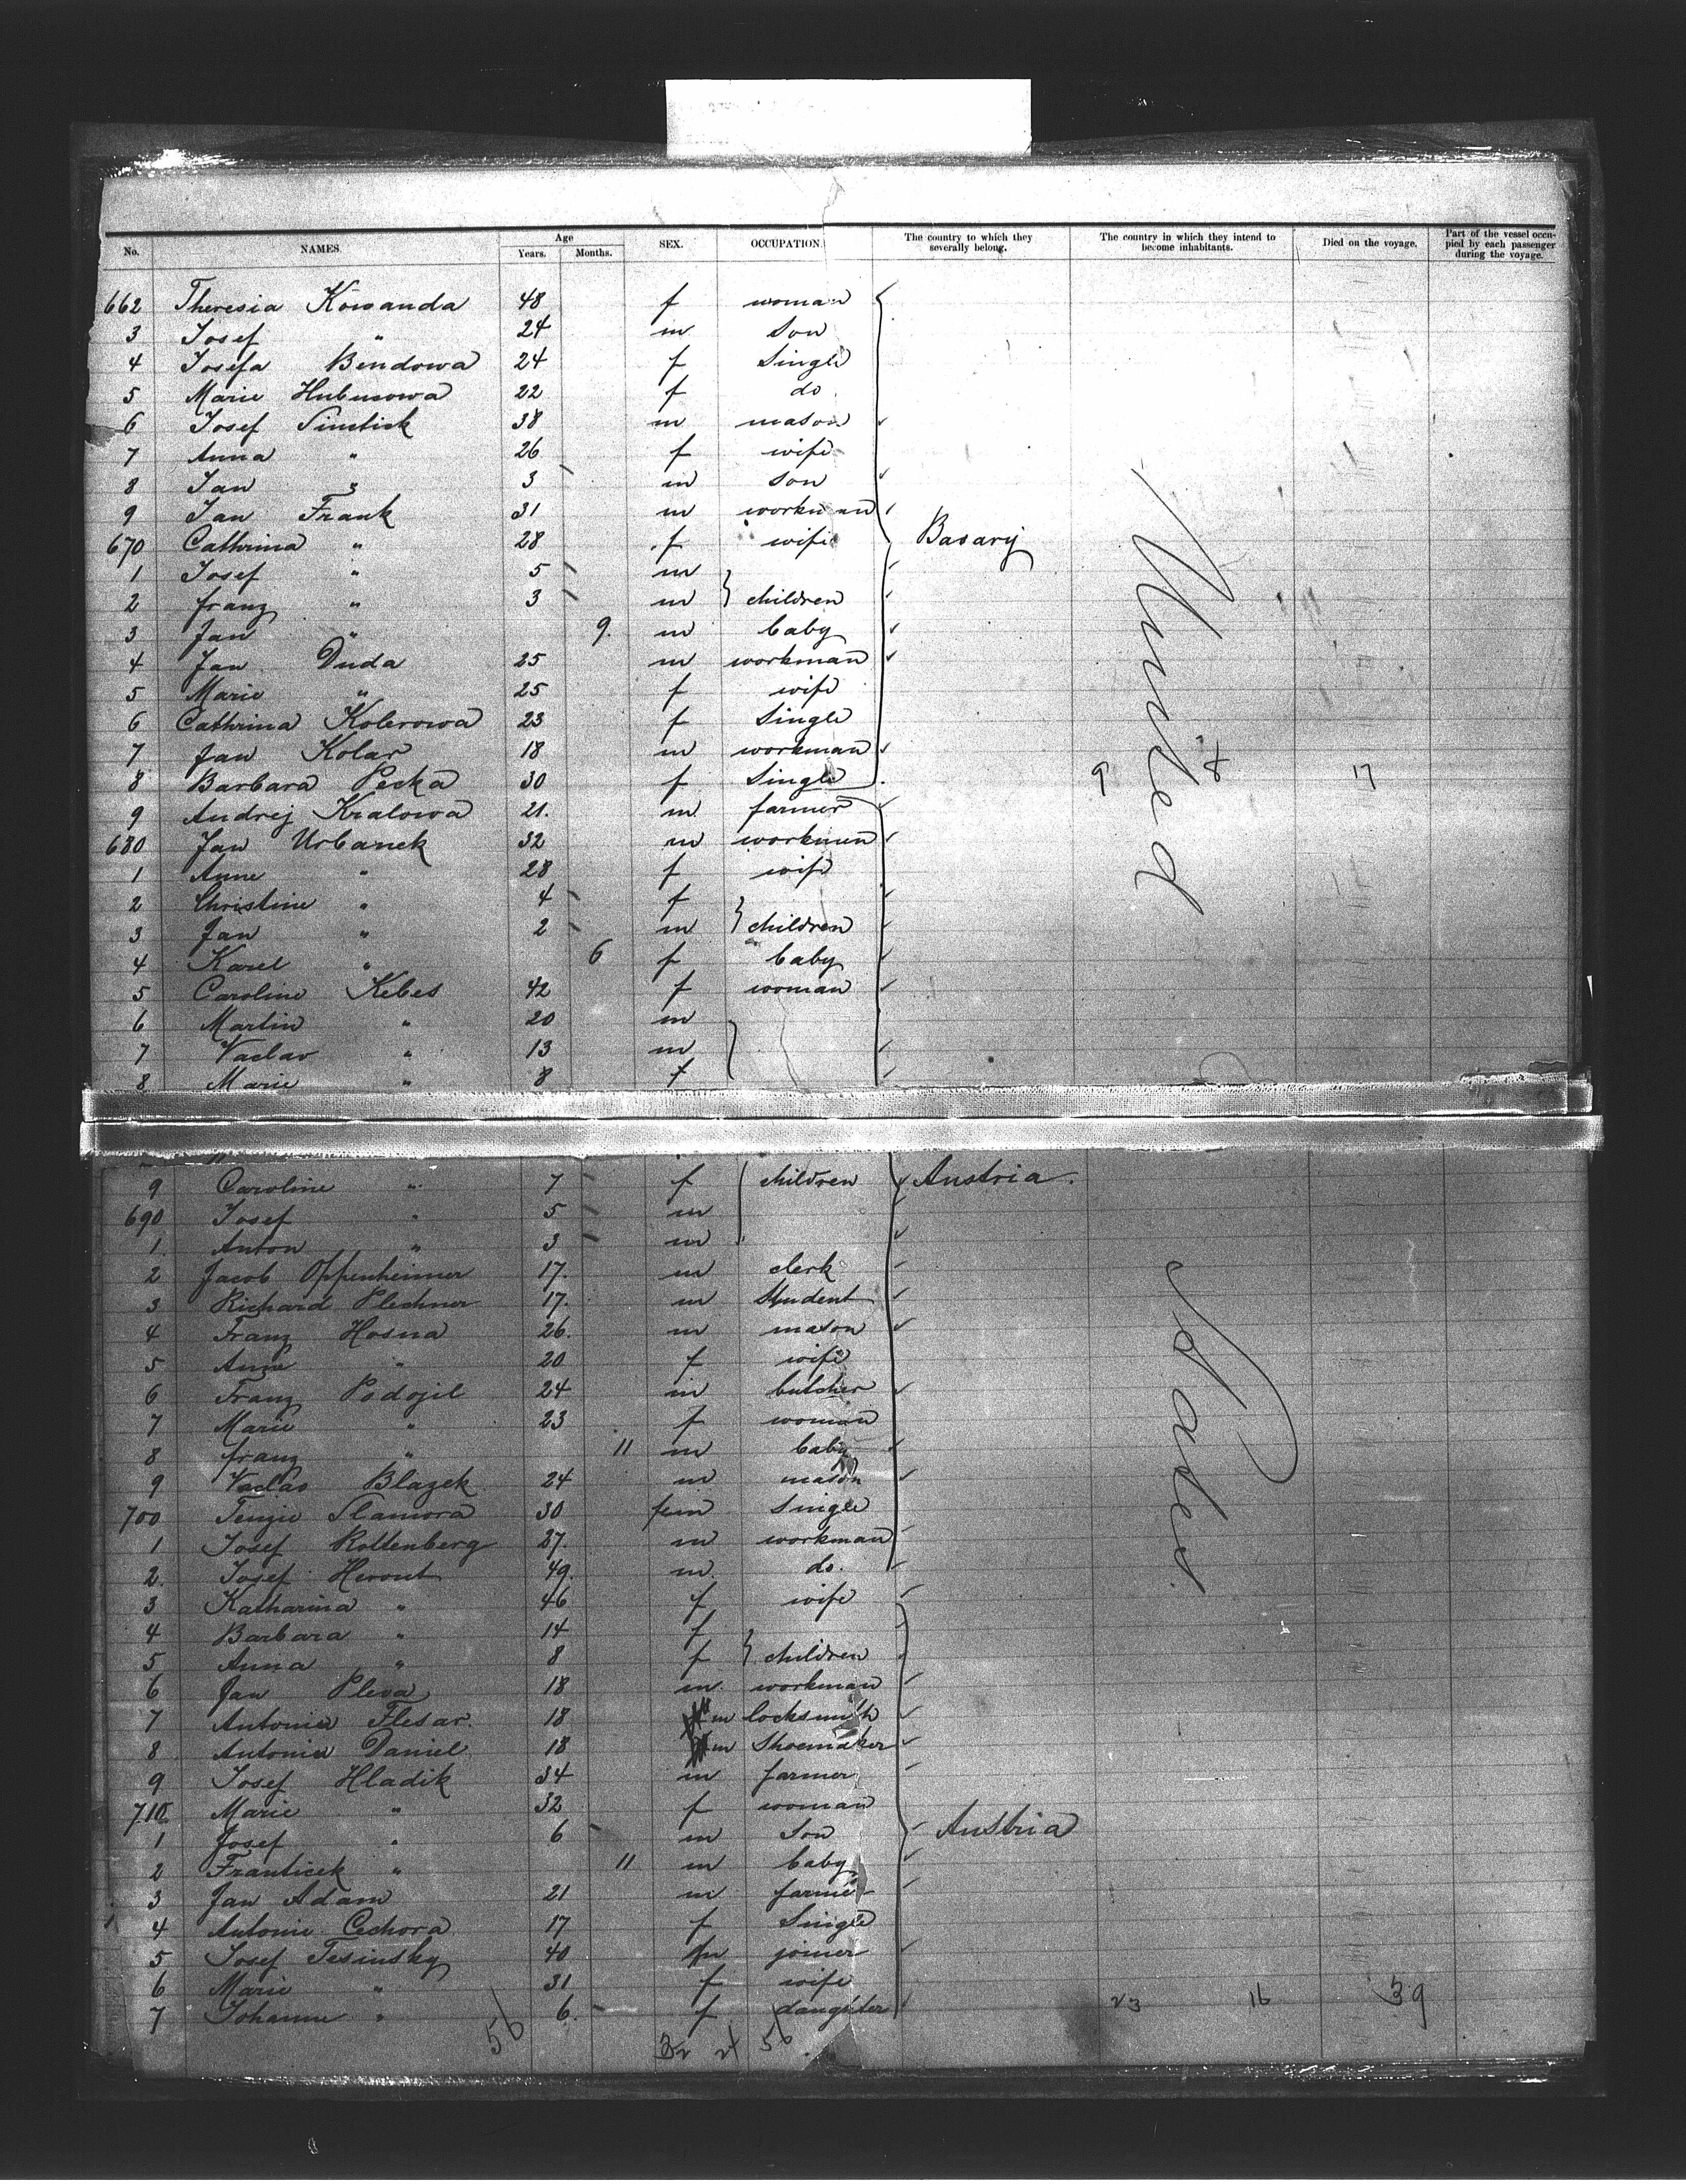 No. NAMES. Age Years. Months. SEX. OCCUPATION. The country to which they severally belong. The country in which they intend to become inhabitants. Died on the voyage. Part of the vessel occupied by each passenger during the voyage.
662 Theresia Kowanda 48 f woman
3 Josef " 24 m son
4 Josefa Bendowa 24 f Single
5 Marie 22 f do
6 Josef 38 m mason
7 Anna " 26 f wife
8 Jan " 3 m son
9 Jan Frank 31 m workman
670 Cathrina " 28 f wife Bavary
1 Josef " 5 m
2 franz " 3 m } children
3 Jan " 9. m baby
4 Jan Duda 25 m workman
5 Marie " 25 f wife
6 Cathrina Kolerowa 23 f Single
7 Jan Kolar 18 m workman
8 Barbara Pecka 30 f Single 9 8 17
9 Andrej Kralowa 21. m farmer
680 Jan Urbanek 32 m workman
1 Anne " 28 f wife
2 Christine " 4 f
3 Jan " 2 m } children
4 Karel " 6 f baby
5 Caroline Kebes 42 f woman
6 Martin " 20 m
7 Vaclav " 13 m
8 Marie " 8 f
United
9 Caroline " 7 f children Austria.
690 Josef " 5 m
1. Anton " 3 m
2 Jacob Oppenheimer 17. m clerk
3 Richard Plechner 17. m Student
4 Franz Hosna 26. m mason
5 Anne " 20 f wife
6 Franz Podojil 24 m butcher
7 Marie " 23 f woman
8 franz " 11 m baby
9 Vaclav Blazek 24 m mason
700 Slamora 30 fem Single
1 Josef Rottenberg 27. m workman
2. Josef Herout 49. m. do.
3 Katharina " 46 f wife
4 Barbara " 14 f
5 Anna " 8 f } children
6 Jan Pleva 18 m. workman
7 Antonia Flesar. 18 m locksmith
8 Antonia Daniel 18 m Shoemaker
9 Josef Hladik 34 m farmer
710 Marie " 32 f woman
1 Josef " 6 m Son Austria
2 Franticek " 11 m baby
3 Jan Adam 21 m farmer
4 Antonie Cechora 17 f Single
5 Josef Tesinsky 40 m joiner
6 Marie " 31 f wife
7 Johanne " 6. f daughter 23 16 39
States.
56 32 24 56